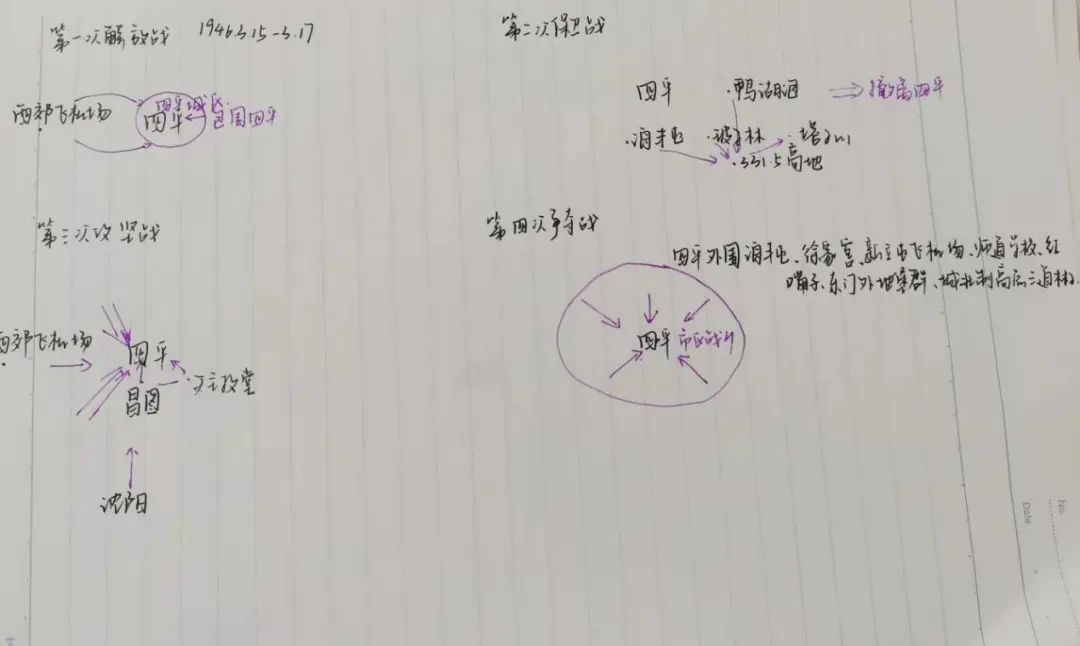 第一次解放战 1946.3.15-3.17
西郊飞机场
四平城区
四平
包围四平
第二次保卫战
四平 ·鸭湖泡 撤离四平
·泊罗林子 ·塔子山
·331.5高地
第三次攻坚战
西郊飞机场
四平
昌图
·天主教堂
沈阳
第四次争夺战
四平外围泊罗、徐家窑、新立屯飞机场、师道学校、红
嘴子、东门外地堡群、城北制高点三道林
四平 市区战斗
No.
Date